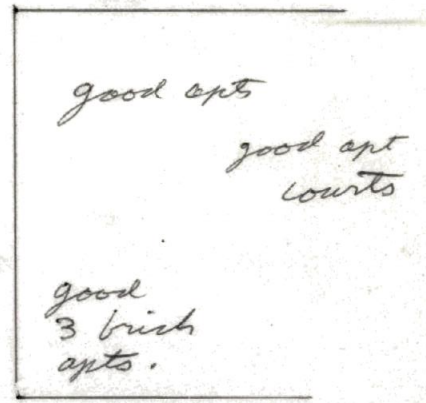 good apts
good apt
courts
good
3 brick
apts.